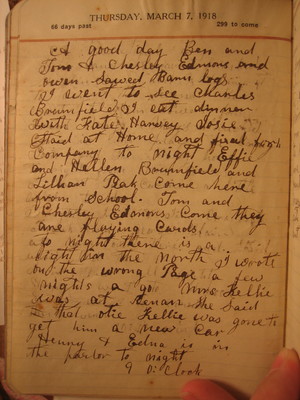 THURSDAY, MARCH 7, 1918
66 days past 299 to come
A good day Ben and
Tom & Chesley Edmons and
owen Sawed Barn logs
I went to see Charles
Brumfield I eat dinner
with Kate Harvey Josie
Staid at Home and
Company to night Effie
and Hellen Brumfield and
Lillian Peak come here
from School. Tom and
Chesley Edmons come they
are playing cards
night there is a
light in the North I wrote
on the wrong Page a few
nights a go Mrs Kellie
was at Renan She Said
that otie Kellie was gone to
get him a new Car
Henny & Edna is in
the parlor to night
9 O Clock